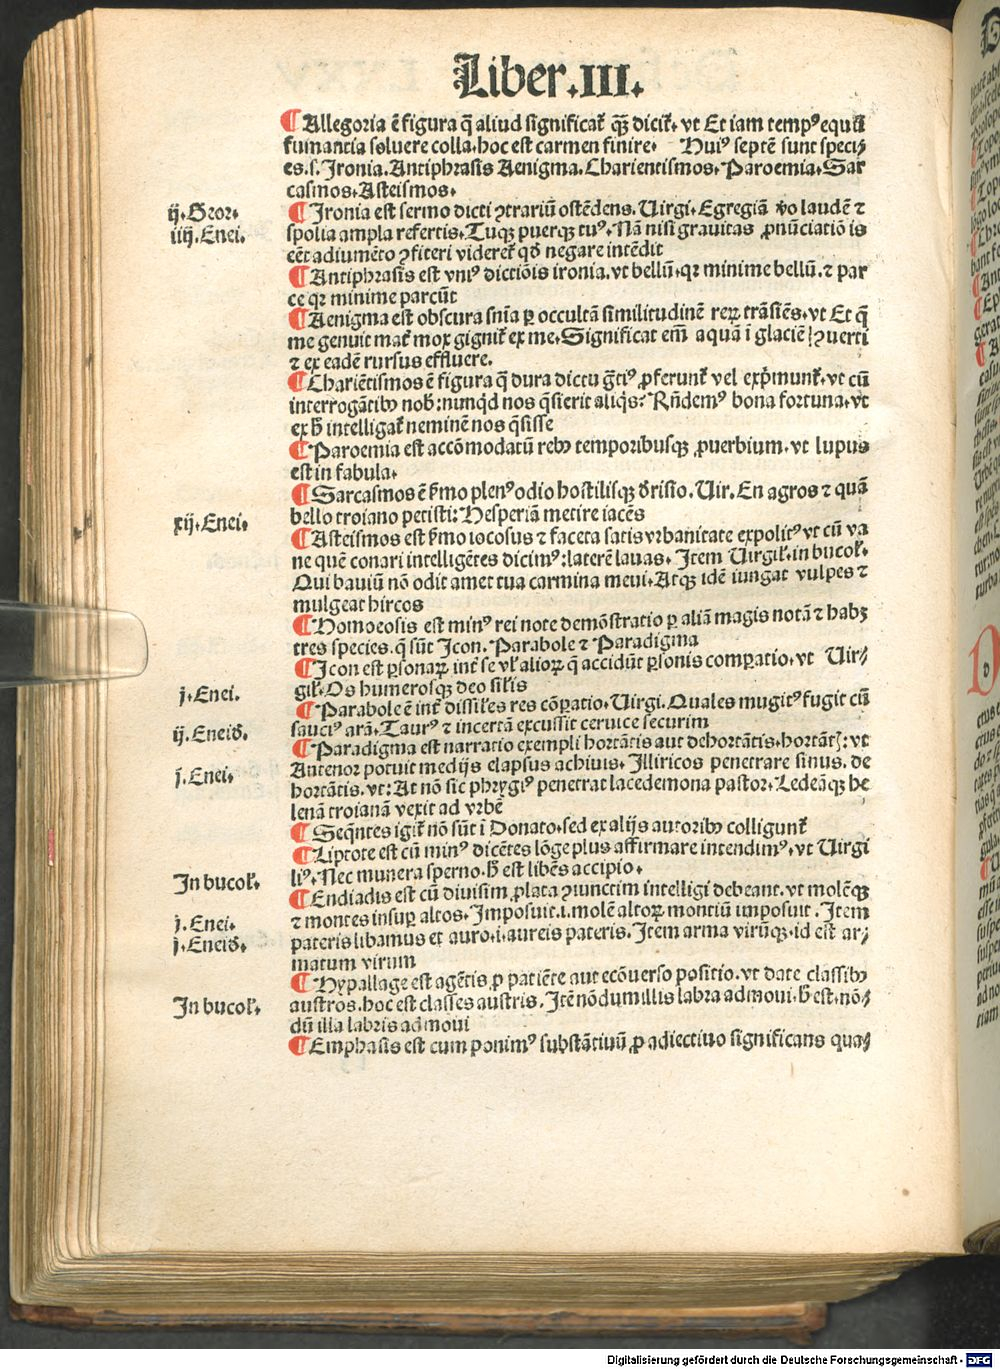 Liber.III.
¶Allegoria ē figura q̄ aliud significat̄ q̄ꝫ dicit̄. vt Et iam tempꝰ equū
fumantia soluere colla. hoc est carmen finire. Huiꝰ septē sunt speci⸗
es. s. Ironia. Antiphrasis Aenigma. Charientismos. Paroemia. Sar
casmos. Asteismos.
ij. Geor.
¶Ironia est sermo dicti ꝯtrariū ostēdens. Uirgi. Egregiā v̄o laudē ⁊
iiij. Enei.
spolia ampla refertis. Tuqꝫ puerqꝫ tuꝰ. Nā nisi grauitas ꝓnūciatiōis
eēt adiumēto ꝯfiteri videret̄ qd̄ negare intēdit
¶Antiphrasis est vniꝰ dictiōis ironia. vt bellū. qꝛ minime bellū. ⁊ par
ce qꝛ minime parcūt
¶Aenigma est obscura sn̄ia ꝑ occultā similitudinē reꝝ trāsiēs. vt Et q̄
me genuit mat̄ mox gignit̄ ex me. Significat em̄ aquā ī glaciē ꝯuerti
⁊ ex eadē rursus effluere.
¶Chariētismos ē figura q̄ dura dictu ḡtiꝰ ꝓferunt̄ vel exp̄munt̄. vt cū
interrogātibꝫ nob̄: nunqd nos q̄sierit aliq̄s? Rn̄demꝰ bona fortuna. vt
ex h̄ intelligat̄ neminē nos q̄sisse
¶Paroemia est accōmodatū rebꝫ temporibusqꝫ ꝓuerbium. vt lupus
est in fabula.
¶Sarcasmos ē s̄mo plenꝰ odio hostiliqꝫ d̄risio. Uir. En agros ⁊ quā
xij. Enei.
bello troiano petisti: Hesperiā metire iacēs
¶Asteismos est s̄mo iocosus ⁊ faceta satis vrbanitate expolitꝰ vt cū va
ne quē conari intelligētes dicimꝰ: laterē lauas. Item Uirgil̄. in bucol̄.
Qui bauiū nō odit amet tua carmina meui. Atqꝫ idē iungat vulpes ⁊
mulgeat hircos
¶Homoeosis est minꝰ rei note demōstratio ꝑ aliā magis notā ⁊ habꝫ
tres species. q̄ sūt Icon. Parabole ⁊ Paradigma
¶Icon est ꝑsonaꝝ int̄ se vl̄ alioꝝ q̄ accidūt ꝑsonis comꝑatio. vt Uir⸗
j. Enei.
gil̄. Os humerosqꝫ deo sil̄is
¶Parabole ē int̄ dissil̄es res cōꝑatio. Uirgi. Quales mugitꝰ fugit cū
ij. Eneid̄.
sauciꝰ arā. Taurꝰ ⁊ incertā excussit ceruice securim
¶Paradigma est narratio exempli hortātis aut dehortātis. hortāt̄: vt
j. Enei.
Antenor potuit medijs elapsus achiuis. Illiricos penetrare sinus. de
hortātis. vt: At nō sic phrygiꝰ penetrat lacedemona pastor. Ledeāqꝫ he
lenā troianā vexit ad vrbē
¶Seq̄ntes igit̄ nō sūt ī Donato. sed ex alijs autoribꝫ colligunt̄
¶Liptote est cū minꝰ dicētes lōge plus affirmare intendimꝰ. vt Uirgi
In bucol̄.
liꝰ. Nec munera sperno. h̄ est libēs accipio.
¶Endiadis est cū diuisim ꝓlata ꝯiunctim intelligi debeant. vt molēqꝫ
j. Enei.
⁊ montes insuꝑ altos. Imposuit. i. molē altoꝝ montiū imposuit. Item
j. Eneid̄.
pateris libamus et auro. i. aureis pateris. Item arma virūqꝫ. id est ar⸗
matum virum
¶Hypallage est agētis ꝓ patiēte aut ecōuerso positio. vt date classibꝫ
In bucol̄.
austros. hoc est classes austris. Itē nōdum illis labra admoui. h̄ est. nō⸗
dū illa labris admoui
¶Emphasis est cum ponimꝰ substātiuū ꝓ adiectiuo significans quaꝫ
Digitalisierung gefördert durch die Deutsche Forschungsgemeinschaft - DFG